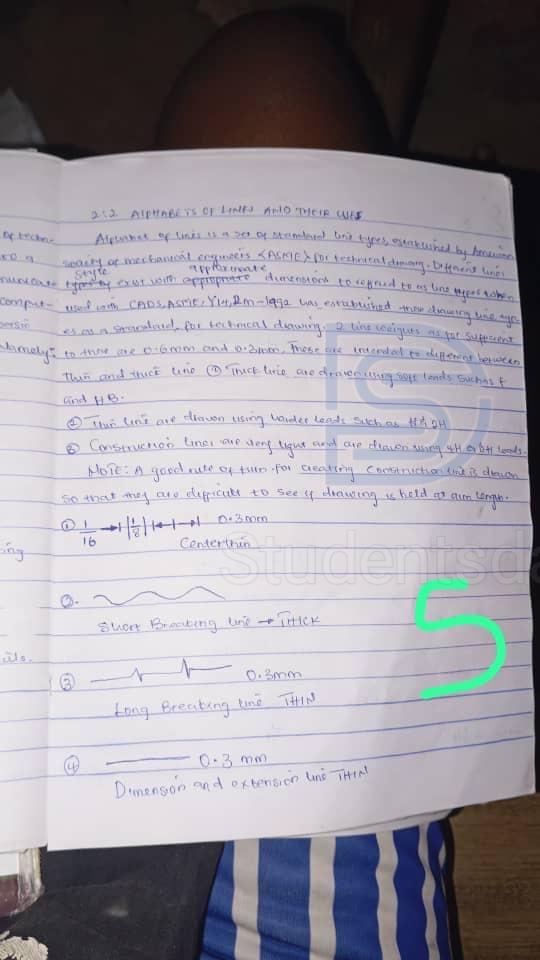 2:2 ALPHABETS OF LINES AND THEIR USES
of techn-
Alphabet of lines is a set of standard line types, established by American
to a
society of mechanical engineers <ASME> for technical drawing. Different line
style approximate
types exist with appropriate dimensions to refered to as line types
comput-
used with CADS, ASME, Y14, 2m-1992 has established these drawing line typ-
es as a standard, for technical drawing. 2 line weights
Namely:
to these are 0.6mm and 0.3mm, These are intended to different between
Thin and thick line ① Thick line are drawn using soft leads such as F
and HB.
② Thin line are drawn using harder leads such as
③ Construction lines are very light and are drawn using 4H or 6H leads.
NOTE: A good rule of tum for creating construction line is drawn
so that they are difficult to see if drawing is held at arm length.
① 1/16 1/8 0.3mm
Center thin
ing
②.
Short Breaking line → THICK
ails.
③ 0.3mm
Long Breaking line THIN
④ 0.3 mm
Dimension and extension line THIN
Studentsda
5